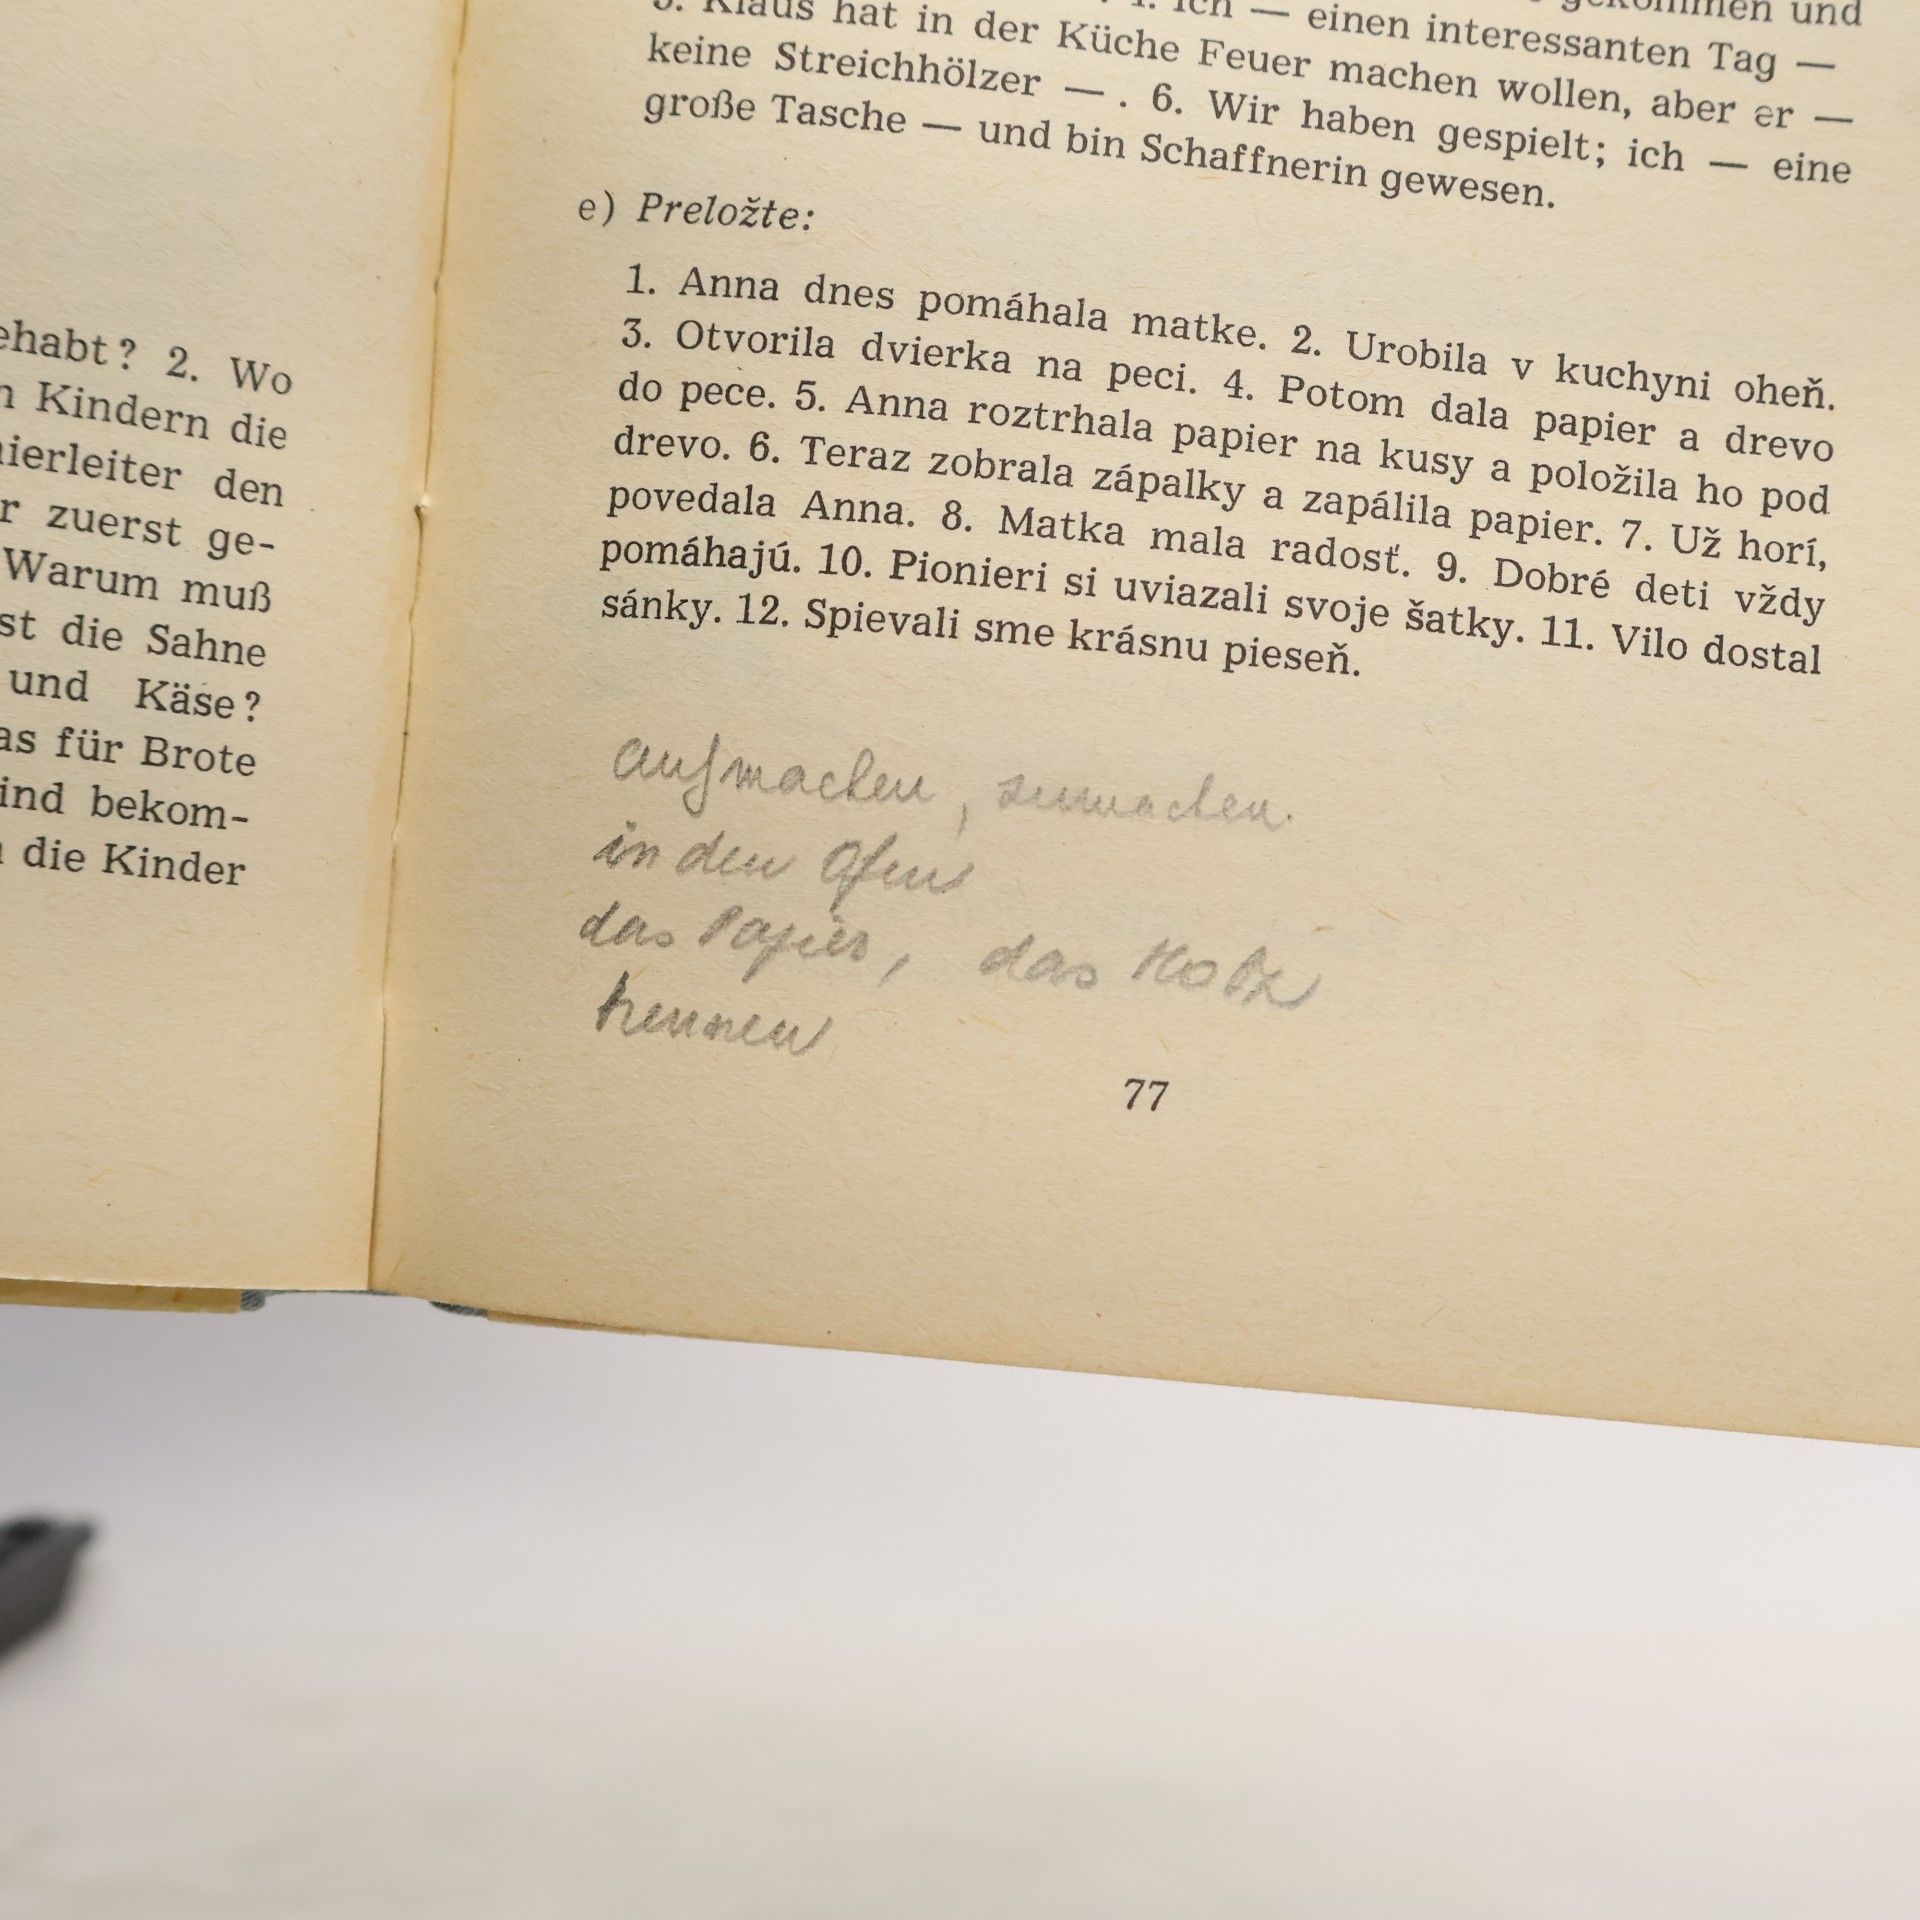 ehabt? 2. Wo
n Kindern die
nierleiter den
r zuerst ge-
Warum muß
st die Sahne
und Käse?
as für Brote
ind bekom-
die Kinder
gekommen und
Ich — einen interessanten Tag —
5. Klaus hat in der Küche Feuer machen wollen, aber er —
keine Streichhölzer — . 6. Wir haben gespielt; ich — eine
große Tasche — und bin Schaffnerin gewesen.
e) Preložte:
1. Anna dnes pomáhala matke. 2. Urobila v kuchyni oheň.
3. Otvorila dvierka na peci. 4. Potom dala papier a drevo
do pece. 5. Anna roztrhala papier na kusy a položila ho pod
drevo. 6. Teraz zobrala zápalky a zapálila papier. 7. Už horí,
povedala Anna. 8. Matka mala radosť. 9. Dobré deti vždy
pomáhajú. 10. Pionieri si uviazali svoje šatky. 11. Vilo dostal
sánky. 12. Spievali sme krásnu pieseň.
aufmachen, zumachen.
in den Ofen
das Papier, das Holz
77